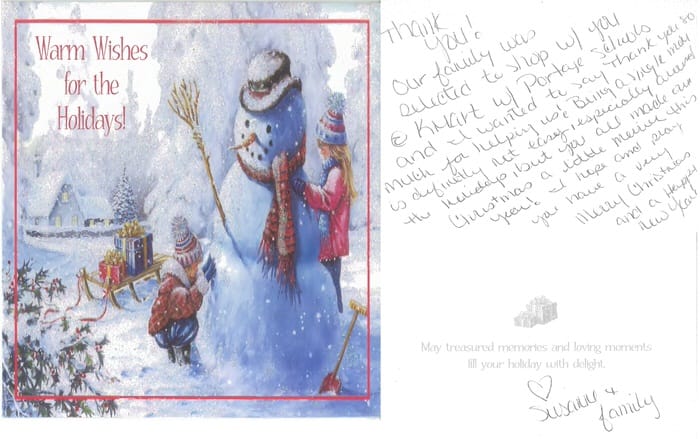 Warm Wishes
for the
Holidays!
Thank
you!
Our family was
selected to shop w/ you
@ Kmart w/ Portage Schools
and I wanted to say Thank you so
much for helping us! Being a single mom
is definitely not easy, especially around
the holidays, but you all made our
Christmas a little merrier this
year! I hope and pray
you have a very
Merry Christmas
and a Happy
New Year
May treasured memories and loving moments
fill your holiday with delight.
♡
Susanne +
family